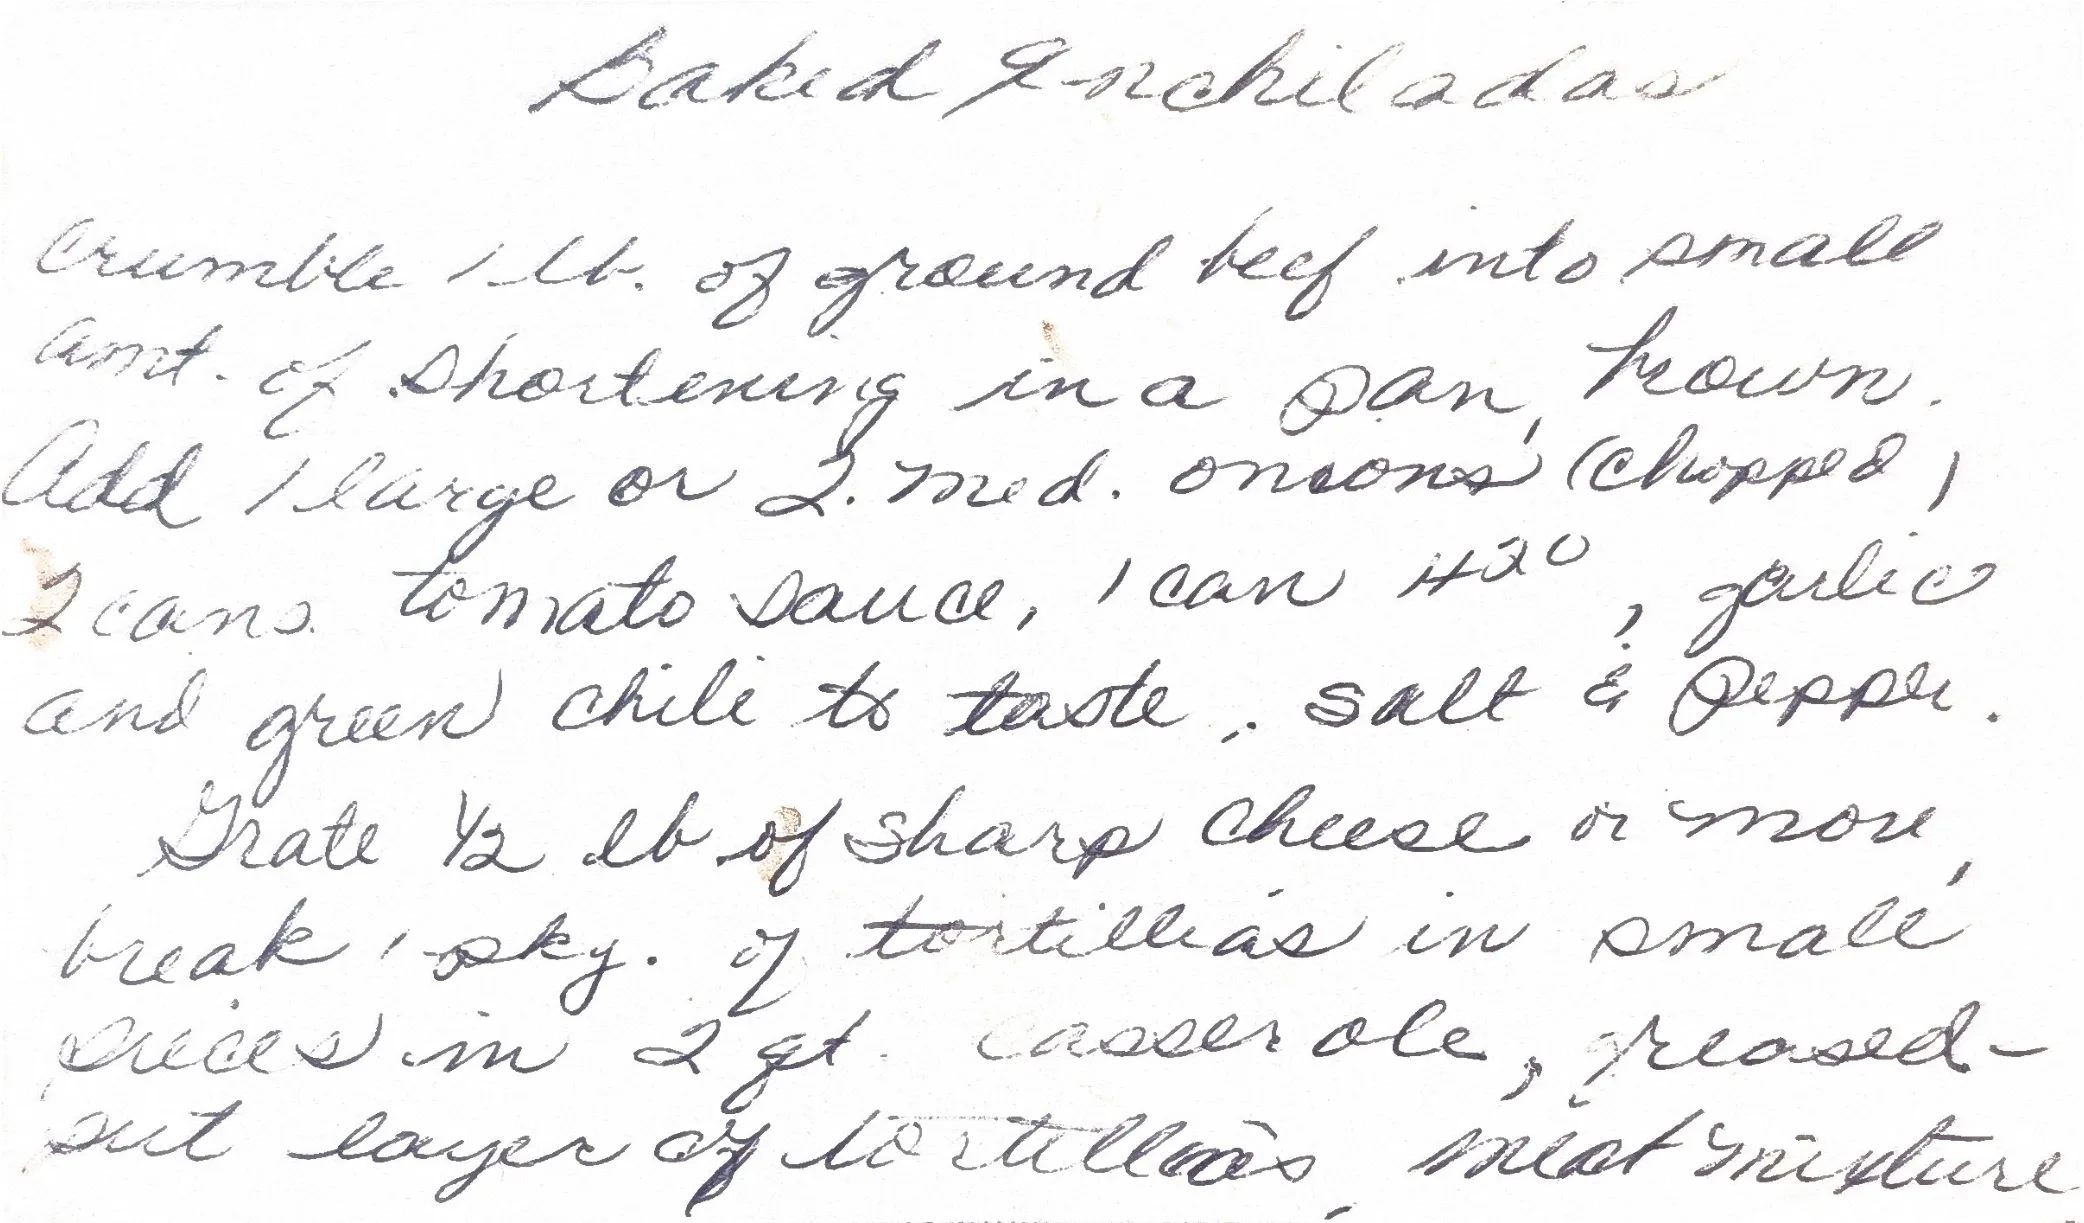 Baked Enchiladas
Crumble 1 lb. of ground beef into small
amt. of shortening in a pan, brown.
Add 1 large or 2. med. onions (chopped)
2 cans. tomato sauce, 1 can H20, garlic
and green chili to taste, salt & pepper.
Grate 1/2 lb of sharp cheese or more,
break 1 pkg. of tortillias in small
pieces in 2 qt. casserole, greased -
put layer of tortillias, meat mixture